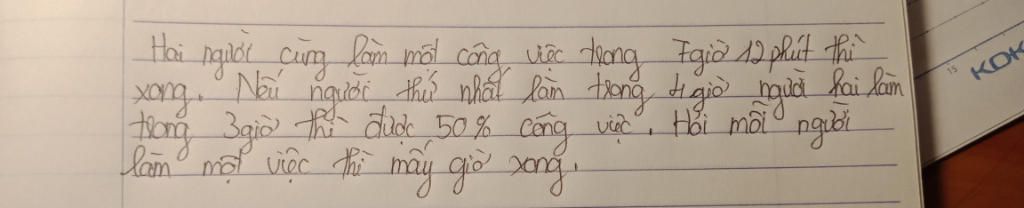 Hai người cùng làm một công việc trong 7giờ 12 phút thì
xong. Nếu người thứ nhất làm trong 4 giờ người hai làm
trong 3giờ thì được 50% công việc. Hỏi mỗi người
làm một việc thì mấy giờ xong.
15